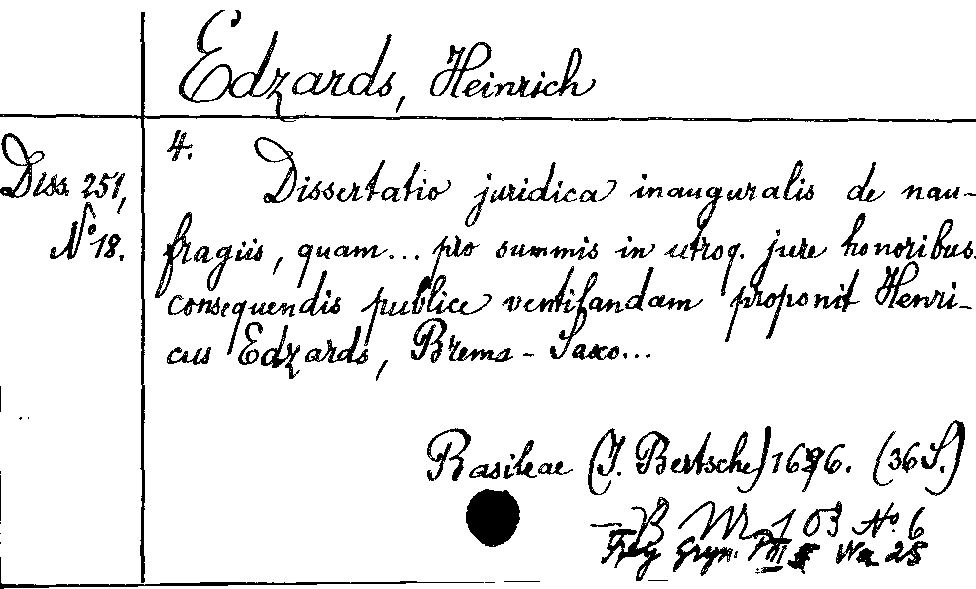 Edzards, Heinrich
4.
Diss. 251,
No 18.
Dissertatio juridica inauguralis de nau-
fragiis, quam... pro summis in utroq. jure honoribus
consequendis publice ventilandam proponit Henri-
cus Edzards, Brema-Saxo...
Basileae (J. Bertsche) 1696. (36 S.)
No. 6
Frey Gryn.